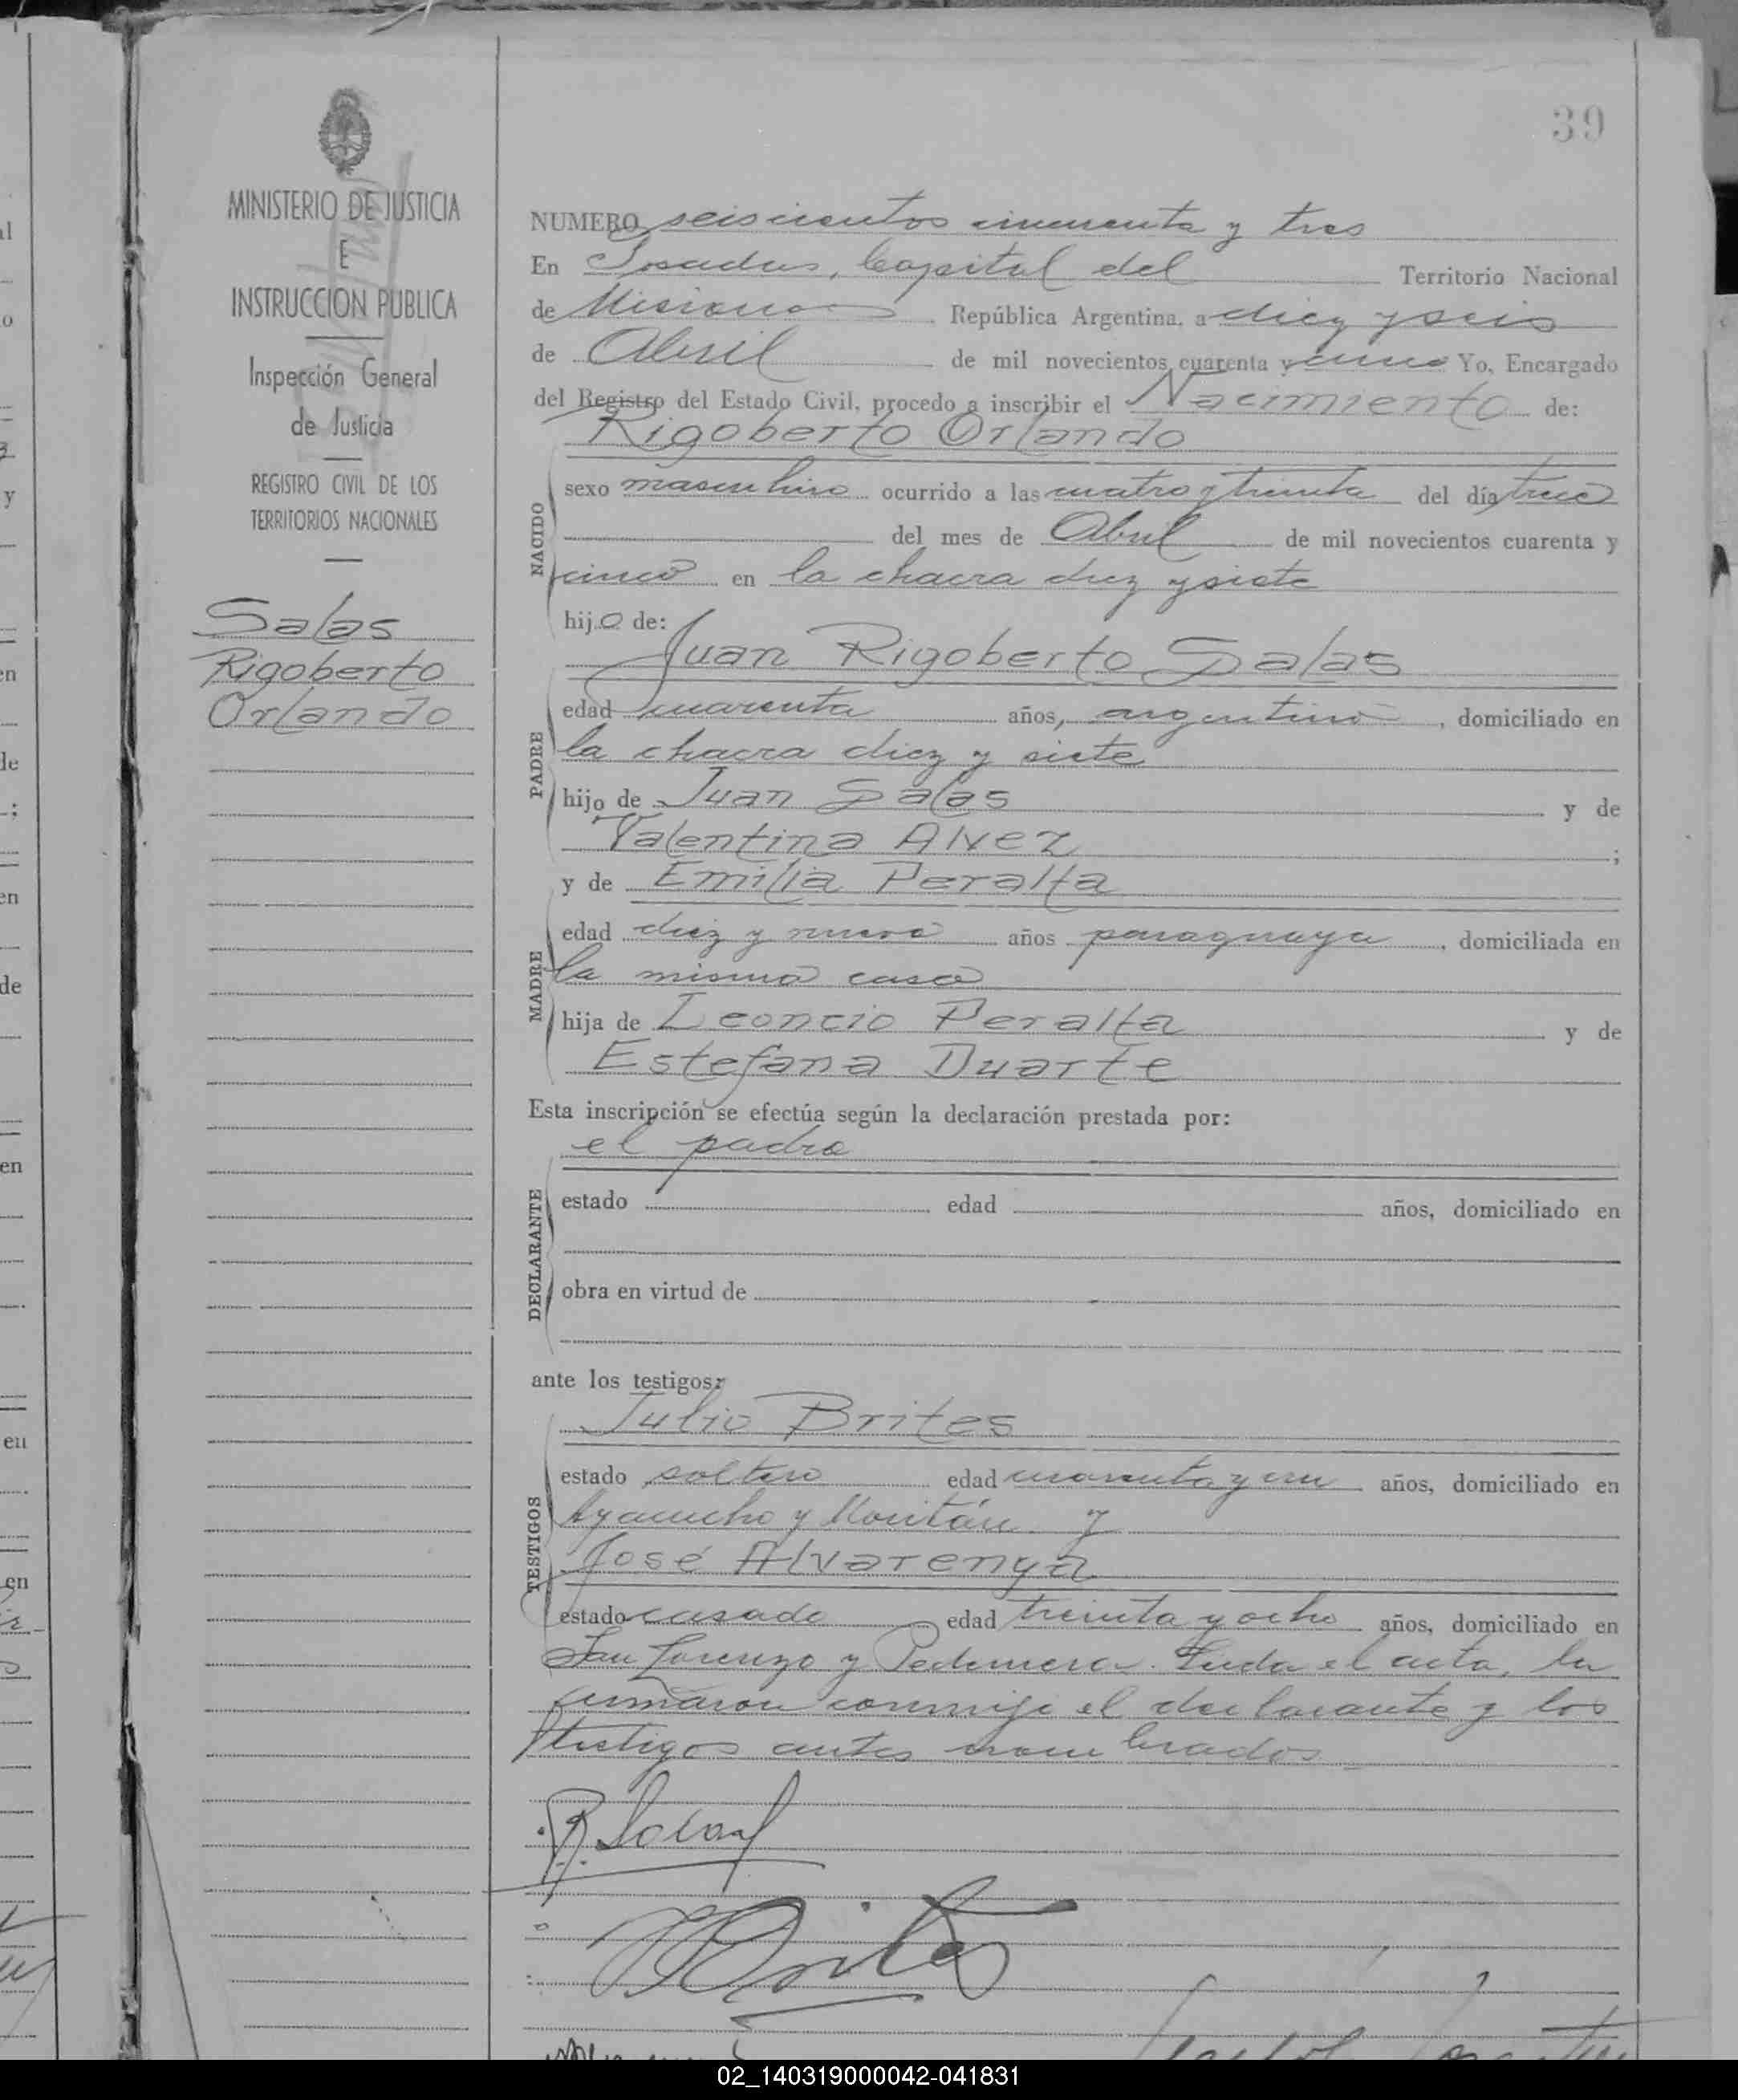 39
MINISTERIO DE JUSTICIA
E
INSTRUCCION PUBLICA
Inspección General
de Justicia
REGISTRO CIVIL DE LOS
TERRITORIOS NACIONALES
Salas
Rigoberto
Orlando
NUMERO seiscientos cincuenta y tres
En Posadas, Capital del Territorio Nacional
de Misiones República Argentina, a diez y seis
de Abril de mil novecientos cuarenta y cinco Yo, Encargado
del Registro del Estado Civil, procedo a inscribir el Nacimiento de:
Rigoberto Orlando
NACIDO
sexo masculino ocurrido a las cuatro y treinta del día trece
del mes de Abril de mil novecientos cuarenta y
cinco en la chacra diez y siete
hijo de:
Juan Rigoberto Salas
PADRE
edad cuarenta años, argentino, domiciliado en
la chacra diez y siete
hijo de Juan Salas y de
Valentina Alvez ;
y de Emilia Peralta
MADRE
edad diez y nueve años paraguaya, domiciliada en
la misma casa
hija de Leoncio Peralta y de
Estefana Duarte
Esta inscripción se efectúa según la declaración prestada por:
el padre
DECLARANTE
estado edad años, domiciliado en
obra en virtud de
ante los testigos:
Julio Brites
TESTIGOS
estado soltero edad cuarenta y un años, domiciliado en
Ayacucho y y
José Alvarenga
estado casado edad treinta y ocho años, domiciliado en
San Lorenzo y Pedernera. Leida el acta, la
firmaron conmigo el declarante y los
testigos antes nombrados
R. Salas
Brites
02_140319000042-041831